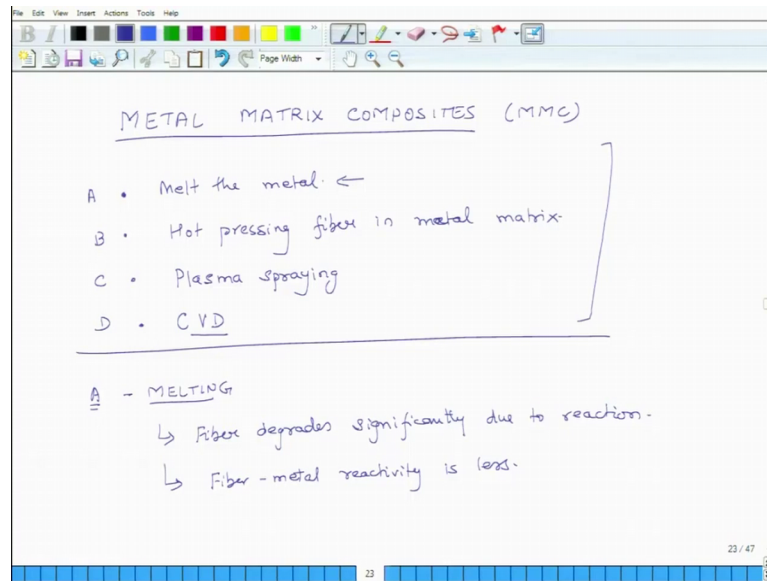 File Edit View Insert Actions Tools Help
B I
Page Width
METAL MATRIX COMPOSITES (MMC)
A • Melt the metal. ←
B • Hot pressing fiber in metal matrix.
C • Plasma spraying
D • CVD
A - MELTING
↳ Fiber degrades significantly due to reaction.
↳ Fiber-metal reactivity is less.
23 / 47
23